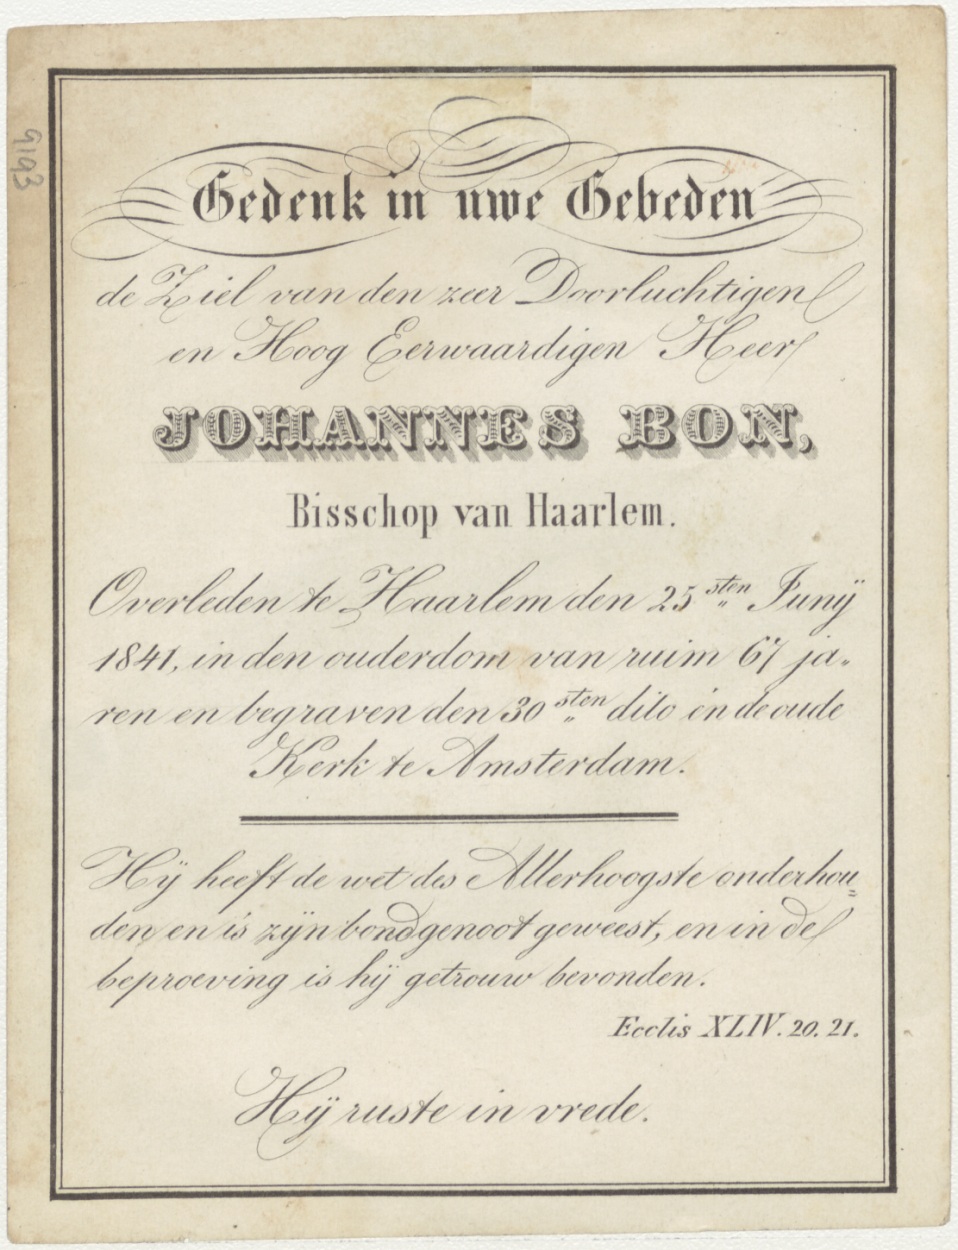 9193
Gedenk in uwe Gebeden
de Ziel van den zeer Doorluchtigen
en Hoog Eerwaardigen Heer
JOHANNES BON,
Bisschop van Haarlem.
Overleden te Haarlem den 25sten Junÿ
1841, in den ouderdom van ruim 67 ja-
ren en begraven den 30sten dito in de oude
Kerk te Amsterdam.
Hÿ heeft de wet des Allerhoogste onderhou=
den en is zÿn bondgenoot geweest, en in de
beproeving is hÿ getrouw bevonden.
Ecclis XLIV. 20. 21.
Hÿ ruste in vrede.